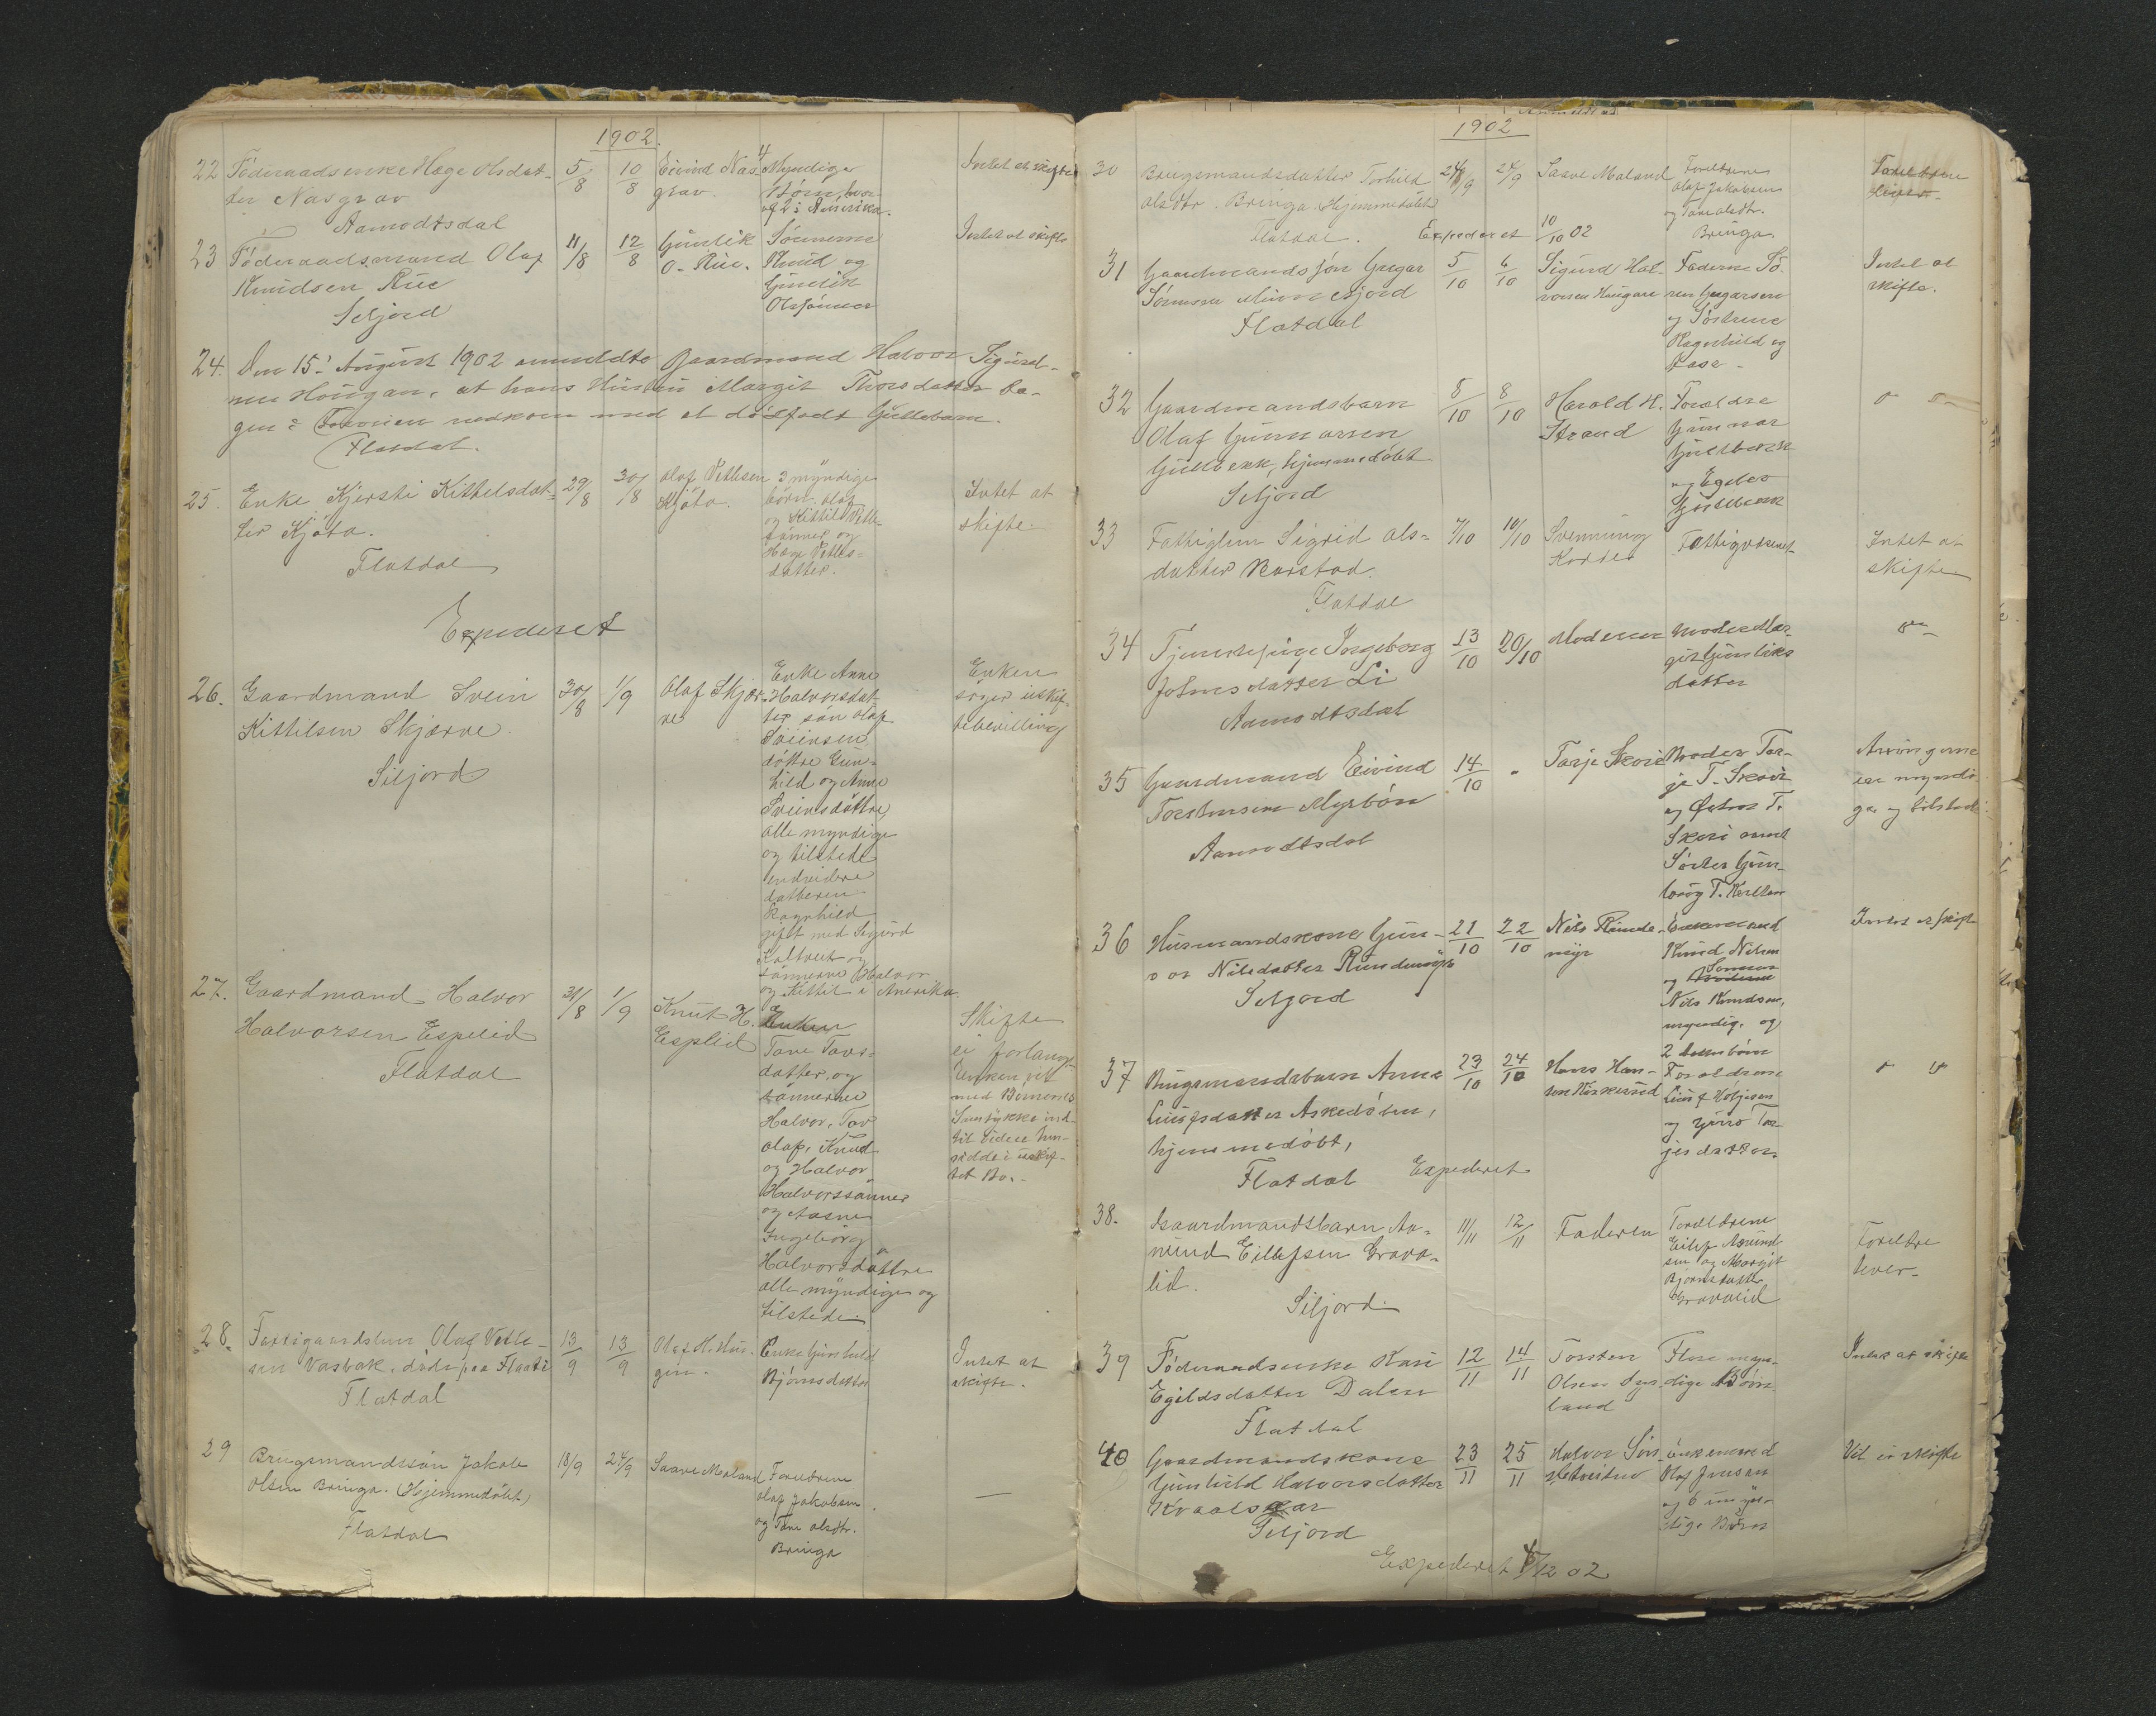 1902.
22 Föderaadsenke Hæge Olsdat-
ter Nasgrav
Aamodtsdal
5/8 10/8
Eivind Nas-
grav.
4 Myndige
Børn, hvor-
af 2 i Amerika.
Intet at skifte
23 Föderaadsmand Olaf
Knudsen Rue
Seljord
11/8 12/8
Gunlik
O. Rue.
Sönnerne
Knud og
Gunlik
Olssönner
Intet at skifte
24. Den 15' August 1902 anmeldte Gaardmand Halvor Sigurd-
sen Haugan, at hans Hustru Margit Thorsdatter Da-
gen i Forveien nedkom med et dødfødt Guttebarn.
Flatdal.
25. Enke Kjersti Kittelsdat-
ter Kjöta.
Flatdal
29/8 30/8
Olaf Vetlesen
Kjöta.
3 myndige
börn. Olaf
og Kittil Vetle-
sönner og
Hæge Vetles-
datter.
Intet at
skifte.
Expederet
26. Gaardmand Svein
Kittilsen Skjærve.
Siljord
30/8 1/9
Olaf Skjær-
ve
Enke Anne
Halvorsdat-
ter sön Olaf
Sveinsen,
döttre Gun-
hild og Anne
Sveinsdöttre
alle myndige
og tilstede
endvidere
datteren
Ragnhild
gift med Sigurd
Kaltveit og
sönnerne Halvor
og Kittil i Amerika.
Enken
söger uskif-
tebevilling
27. Gaardmand Halvor
Halvorsen Espelid
Flatdal
31/8 1/9
Knut H.
Esplid
Enken
Tone Tovs-
datter, og
sönnerne
Halvor, Tov
Olaf, Knud
og Halvor
Halvorssönner
og Aasne
Ingeborg
Halvorsdöttre
alle myndige og
tilstede.
Skifte
ei forlangt
Enken vil
med Börnenes
Samtykke ind-
til videre hen-
sidde i uskif-
tet Bo.-
28. Fattigaardslem Olaf Vetle-
sen Vasbæk, döde paa Flaate
Flatdal
13/9 13/9
Olaf H. Hau-
gen.
Enke Gunhild
Bjørnsdatter
Intet at
skifte.
29 Brugsmandssön Jakob
Olsen Bringa. (Hjemmedöbt)
Flatdal
18/9 24/9
Saave Moland
Foreldrene
Olaf Jakobsen
og Tone Olsdtr.
Bringa
—
1902
30 Brugsmandsdatter Torhild
Olsdtr. Bringa (Hjemmedöbt)
Flatdal. Expederet 10/10 02
24/9 24/9
Saave Moland
Foreldrene
Olaf Jakobsen
og Tone Olsdtr.
Bringa
Foreldrene
31 Gaardmandssøn Gregar
Sörensen Minnesjord
Flatdal
5/10 6/10
Sigurd Hal-
vorsen Haugan
Faderne Sö-
ren Gregarsen
og Söstrene
Ragnhild og
Aase -
Intet at
skifte.
32 Gaardmandsbarn
Olaf Gunnarsen
Gullbekk, hjemmedöbt
Seljord
8/10 8/10
Harald H.
Strand
Foreldre
Gunnar
Gullbekk
og Egelev
Gullbekk
33 Fattiglem Sigrid Ols-
datter Karstad.
Flatdal
7/10 10/10
Svenning
Fattigvæsenet
Intet at
skifte
34 Tjenestepige Ingeborg
Johnsdatter Li
Aamodtsdal
13/10 20/10
Moderen
Moder Mar-
git Gunliks
datter
35 Gaardmand Eivind
Torstensen Myrbön
Aamodtsdal
14/10
Tarje Skori
Broder Tar-
je T. Skori
og Østen T.
Skori samt
Söster Gun-
borg T.
Arvingerne
er myndi-
ge og tilstede.
36 Husmandskone Gun-
vor Nilsdatter Rundemyr
Seljord
21/10 22/10
Nils Runde-
myr
Enkemand
Knud Nilsen
og Sönnen
Nils Knudsen,
myndig, og
2
Intet at skifte
37 Brugsmandsbarn Anne
Leiufsdatter Askedölen,
hjemmedöbt,
Flatdal Expederet
23/10 24/10
Hans Han-
sen
Foreldrene
Leiuf Holjesen
og Guro Tar-
jesdatter.
38. Gaardmandsbarn Aa-
mund Eilefsen Grava-
lid.
Siljord.
11/11 12/11
Faderen
Foreldrene
Eilef Aamund-
sen og Margit
Bjørnsdatter
Gravalid
Foreldre
lever-
39 Föderaadsenke Kari
Egildsdatter Dalen
Flatdal
12/11 14/11
Torsten
Olsen Byr-
land
Flere myn-
dige Börn
Intet at skifte
40 Gaardmandskone
Gunhild Halvorsdatter
Kvaalskar
Seljord
23/11 25/11
Halvor Sön-
stetveiten
Enkemand
Olaf Jensen
og 6 umyn-
dige Börn
Vil ei skifte
Expederet 4/12 02